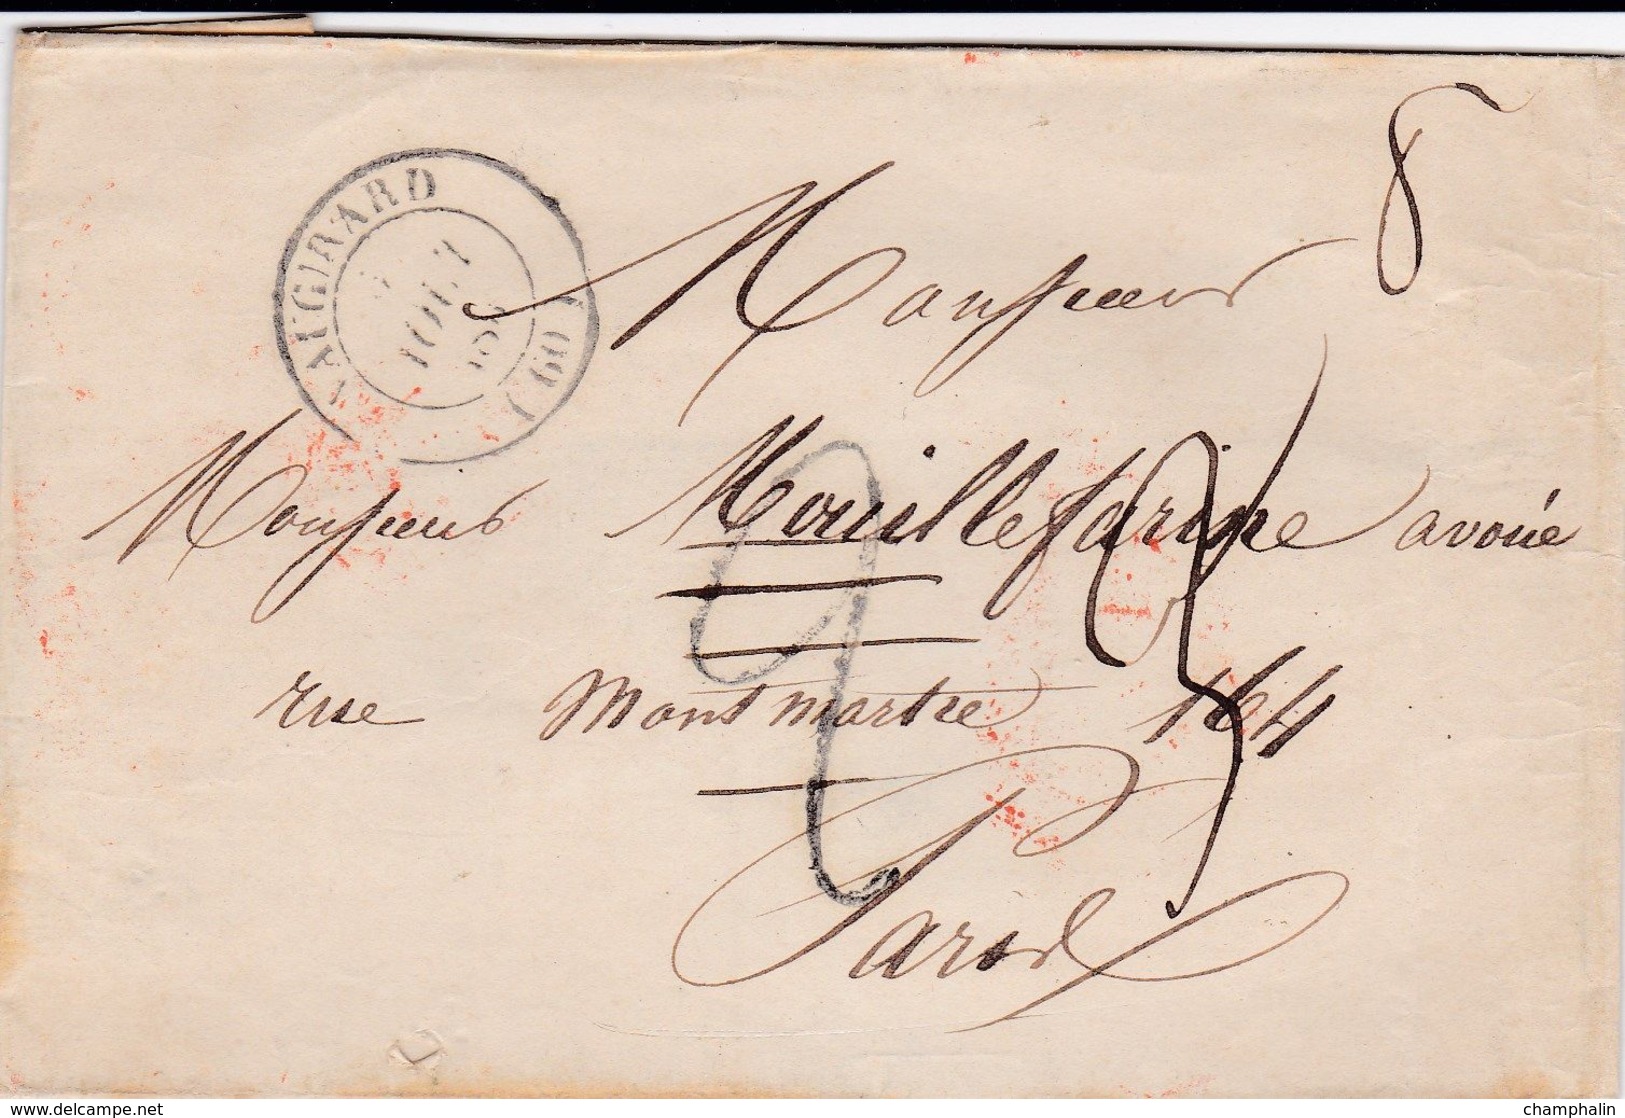 VAUGIRARD
AOUT
(60)
8
Monsieur
Monsieur Mouillefarine avoué
2
3
rue Montmartre 164
Paris
www.delcampe.net
champhalin